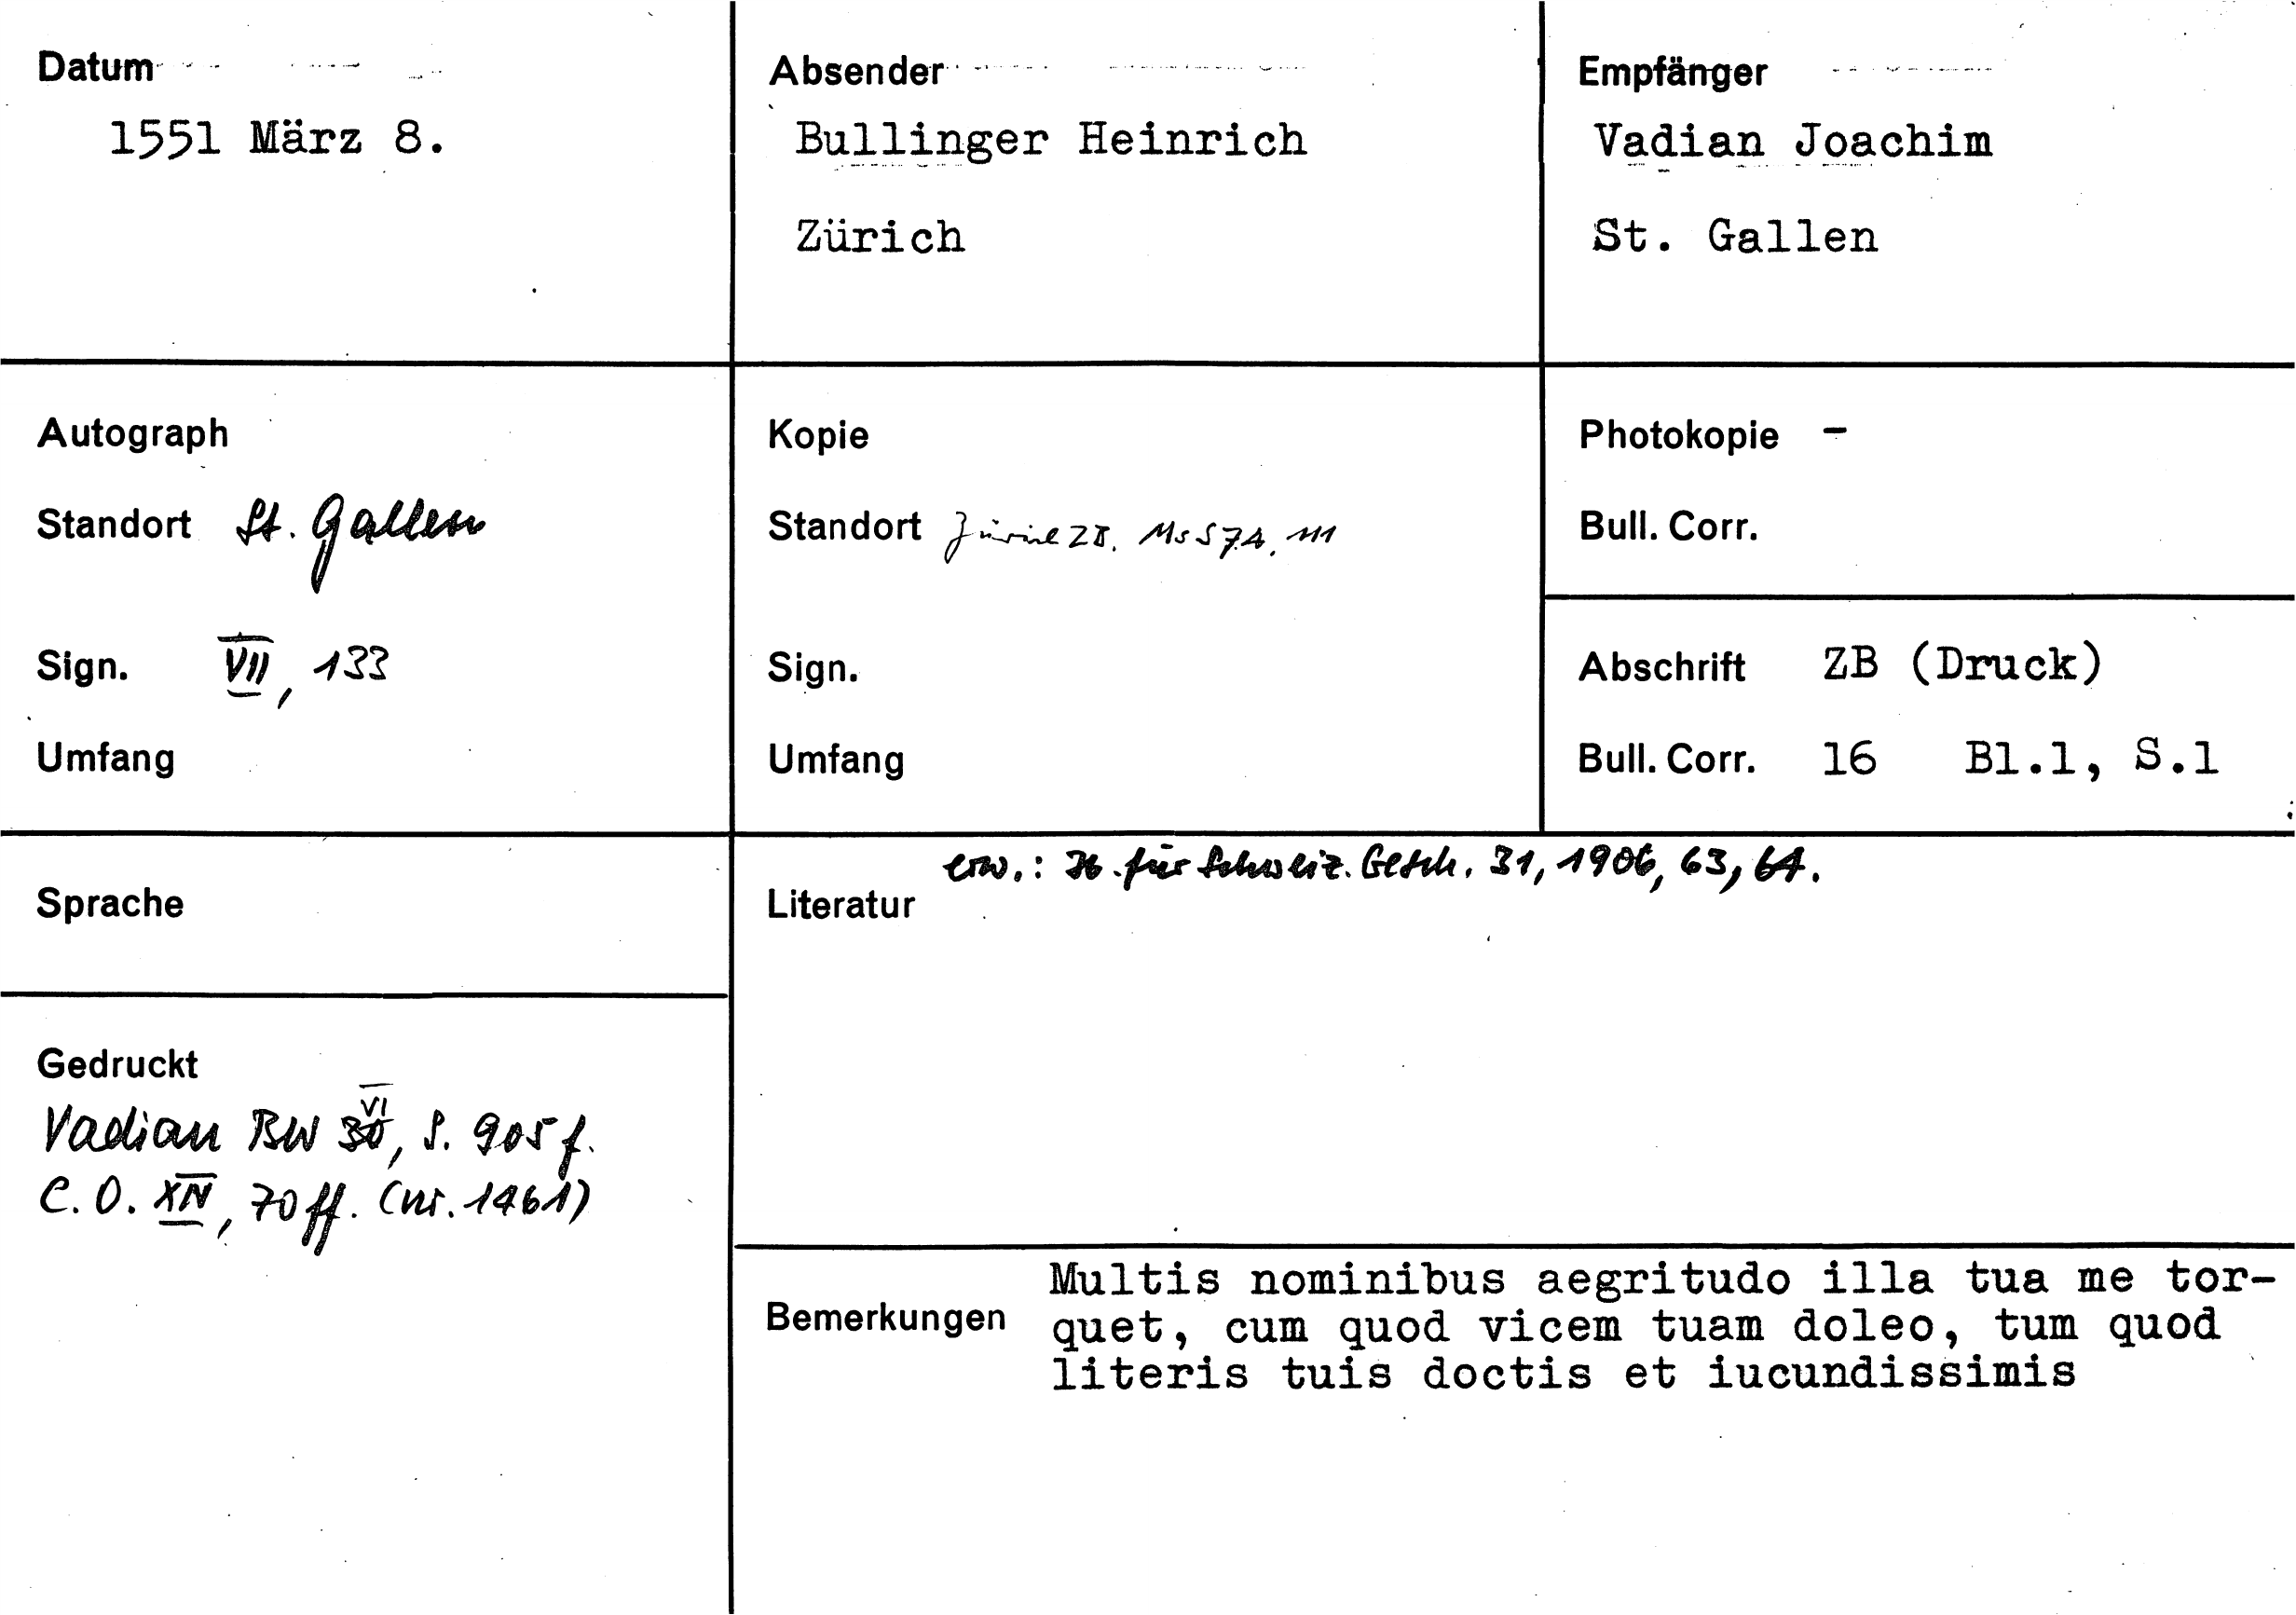 Datum
1551 März 8.
Absender
Bullinger Heinrich
Zürich
Empfänger
Vadian Joachim
St. Gallen
Autograph
Standort St. Gallen
Sign. VII, 133
Umfang
Kopie
Standort Zürich ZB. Ms S 74, 111
Sign.
Umfang
Photokopie -
Bull. Corr.
Abschrift ZB (Druck)
Bull. Corr. 16 Bl.1, S.1
Sprache
Gedruckt
Vadian BW VI, S. 905 f.
C. O. XIV, 70 ff. (nr. 1461)
erw.: Jb. für Schweiz. Gesch. 31, 1906, 63, 64.
Literatur
Bemerkungen
Multis nominibus aegritudo illa tua me tor-
quet, cum quod vicem tuam doleo, tum quod
literis tuis doctis et iucundissimis